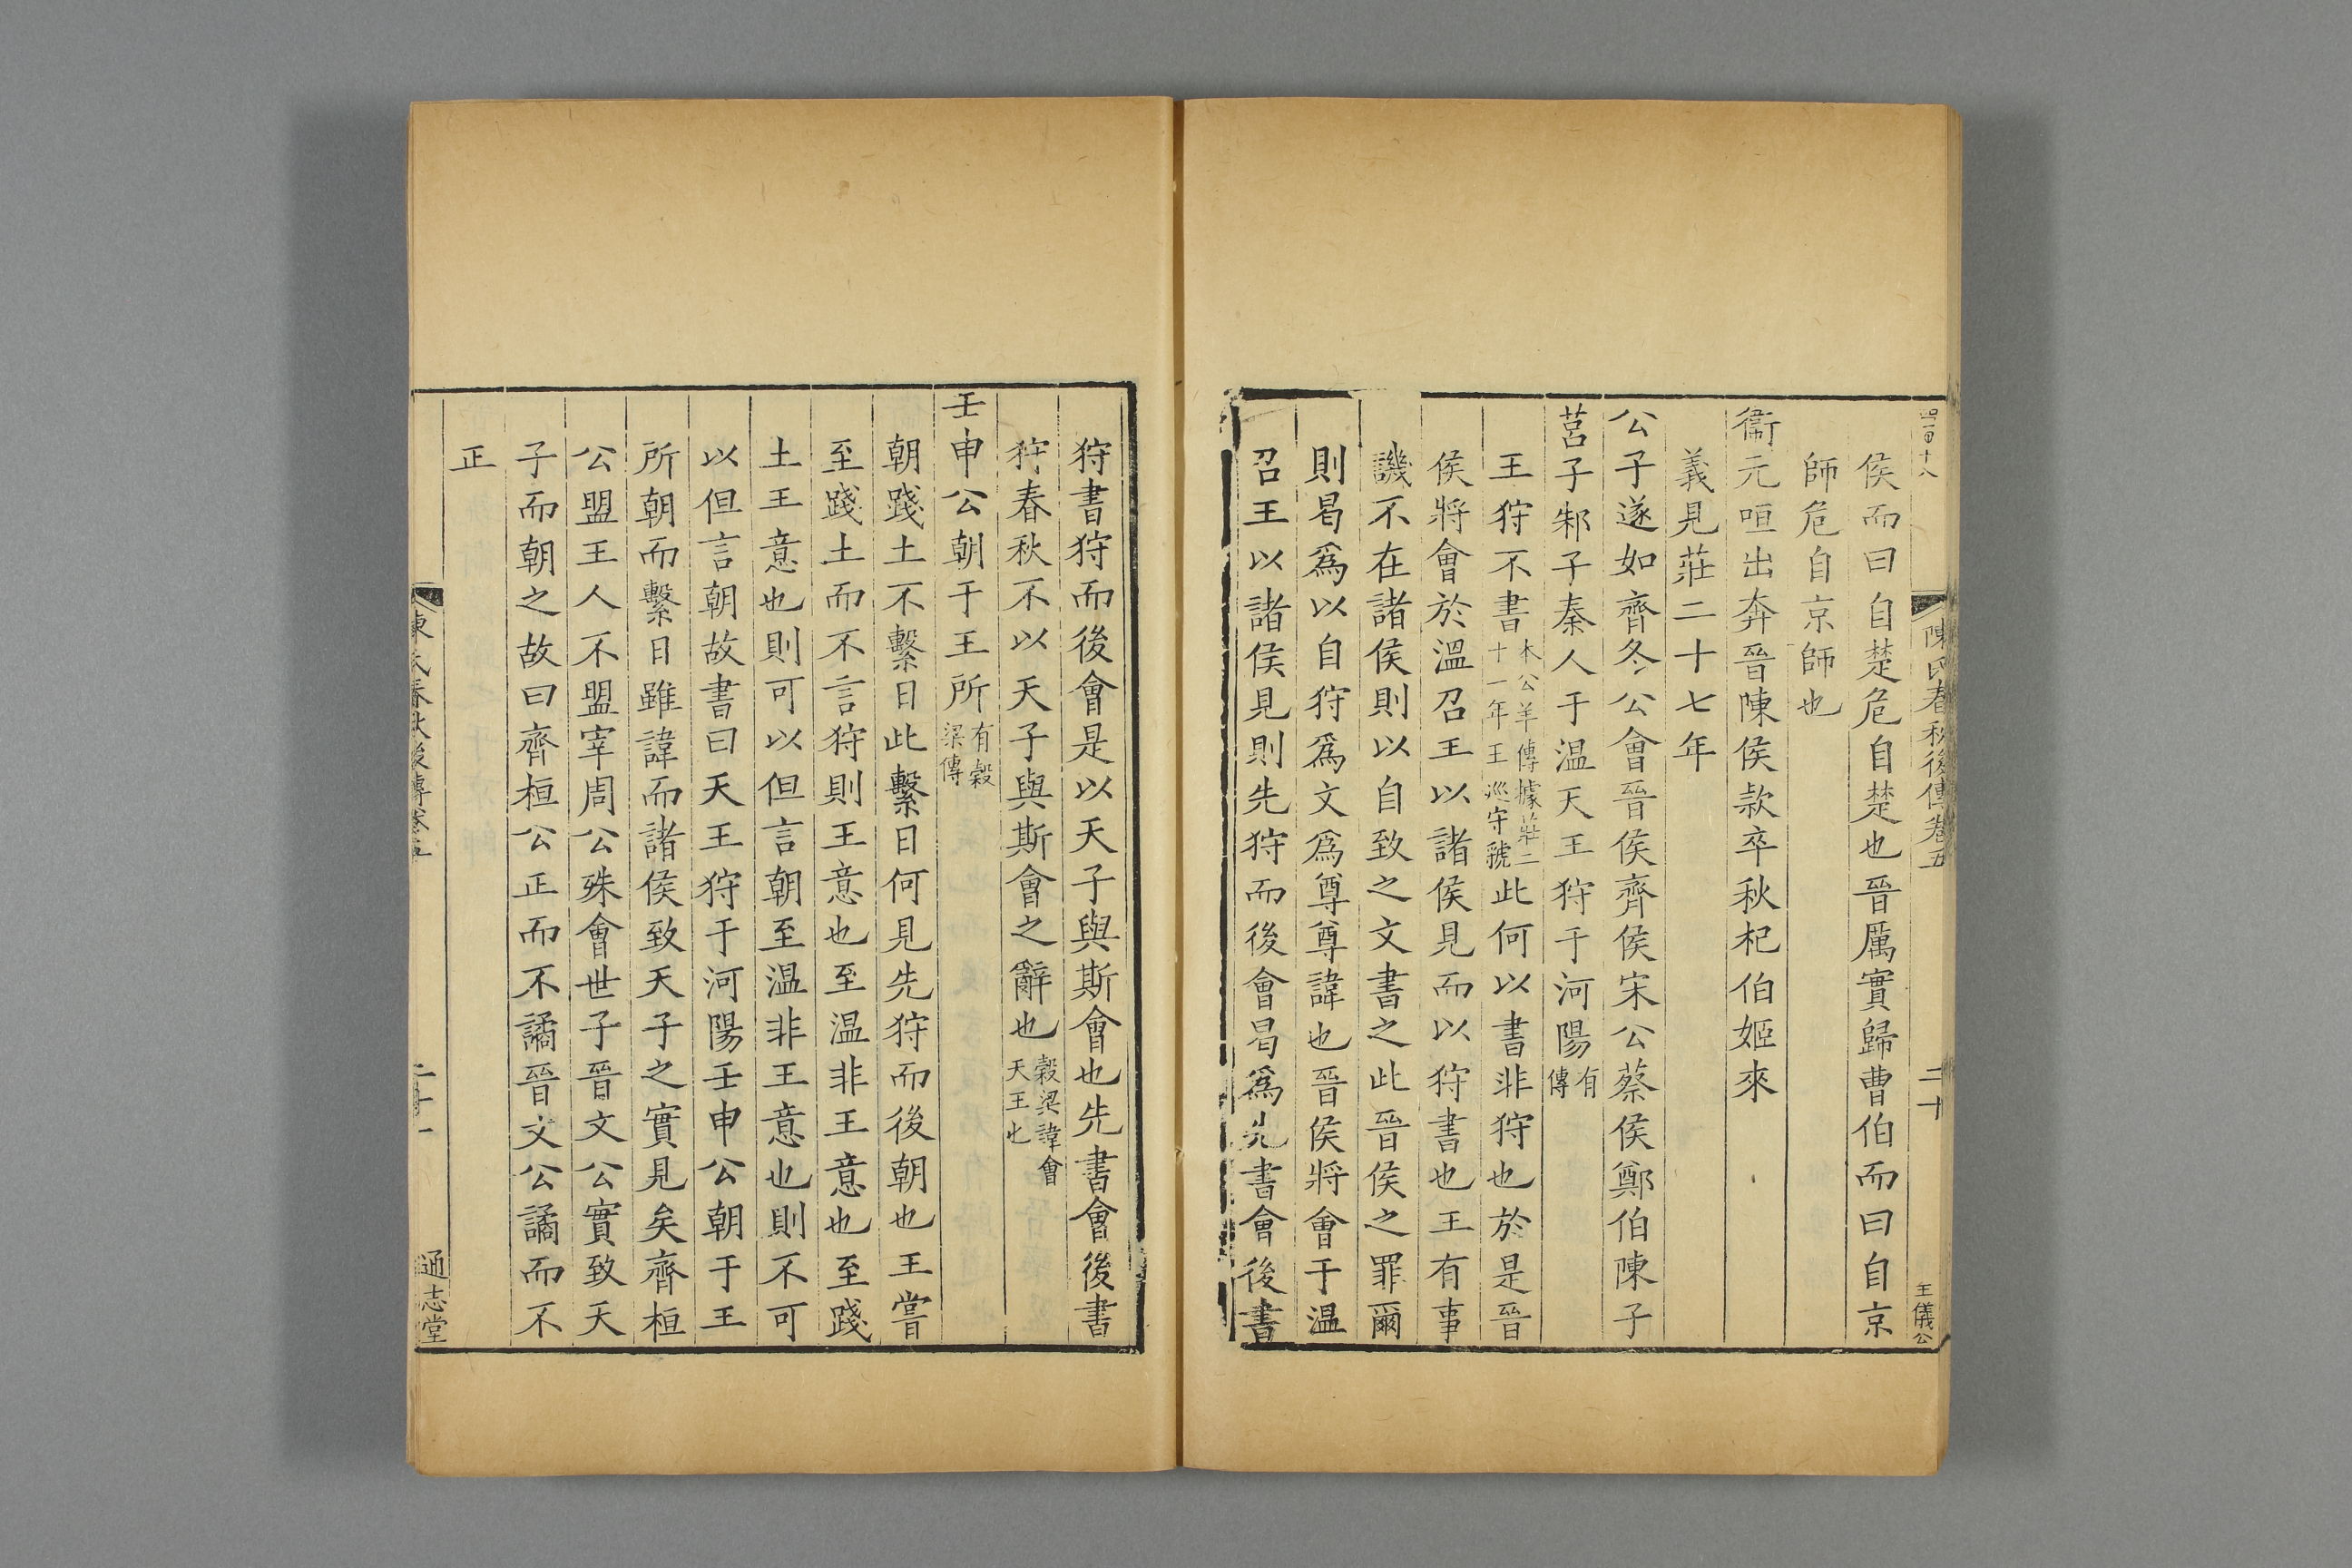 陳氏春秋後傳卷五 二十 王儀公
侯而曰自楚危自楚也晉厲實歸曹伯而曰自京
師危自京師也
衞元咺出奔晉陳侯款卒秋杞伯姬來
義見莊二十七年
公子遂如齊冬公會晉侯齊侯宋公蔡侯鄭伯陳子
莒子邾子秦人于温天王狩于河陽有傳
王狩不書本公羊傳據莊二十一年王巡守虢此何以書非狩也於是晉
侯將會於溫召王以諸侯見而以狩書也王有事
譏不在諸侯則以自致之文書之此晉侯之罪爾
則曷爲以自狩爲文爲尊尊諱也晉侯將會于温
召王以諸侯見則先狩而後會曷爲先書會後書
狩書狩而後會是以天子與斯會也先書會後書
狩春秋不以天子與斯會之辭也穀梁諱會天王也
壬申公朝于王所有穀梁傳
朝踐土不繫日此繫日何見先狩而後朝也王嘗
至踐土而不言狩則王意也至温非王意也至踐
土王意也則可以但言朝至温非王意也則不可
以但言朝故書曰天王狩于河陽壬申公朝于王
所朝而繫日雖諱而諸侯致天子之實見矣齊桓
公盟王人不盟宰周公殊會世子晉文公實致天
子而朝之故曰齊桓公正而不譎晉文公譎而不
正
陳氏春秋後傳卷五 二十一 通志堂